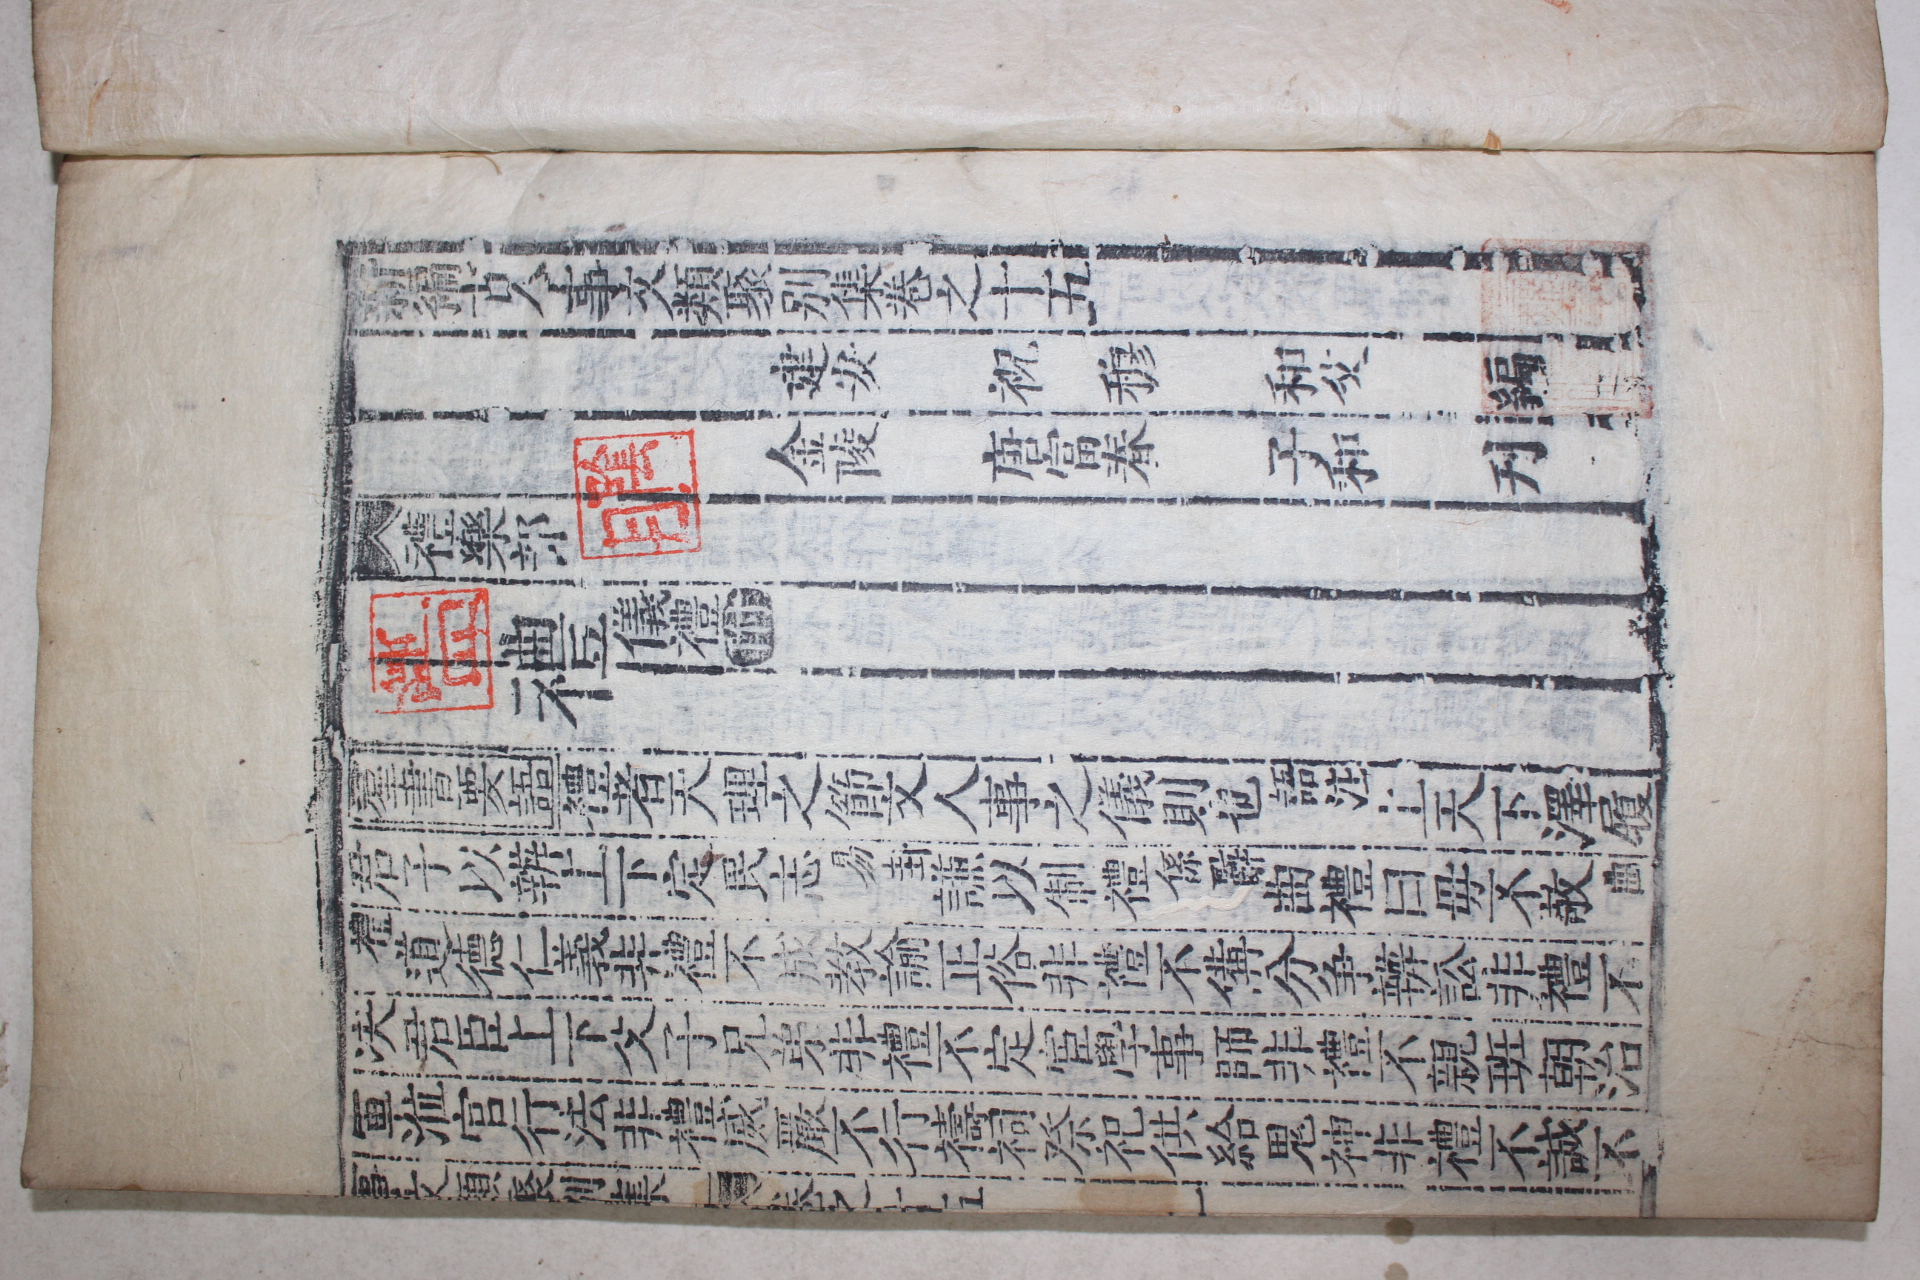 新編古今事文類聚別集卷之十五
建安 祝 穆 和父 編
金陵 唐富春 子和 刋
禮樂部
禮 儀禮附
羣書要語禮者天理之節文人事之儀則也語註上天下澤履
君子以辨上下定民志易卦謙以制禮係辭曲禮曰毋不敬曲
禮道德仁義非禮不成教訓正俗非禮不備分爭辨訟非禮不
决君臣上下父子兄弟非禮不定宦學事師非禮不親班朝治
軍涖官行法非禮威嚴不行禱祠祭祀供給鬼神非禮不誠不
事文類聚別集 卷之十五 一